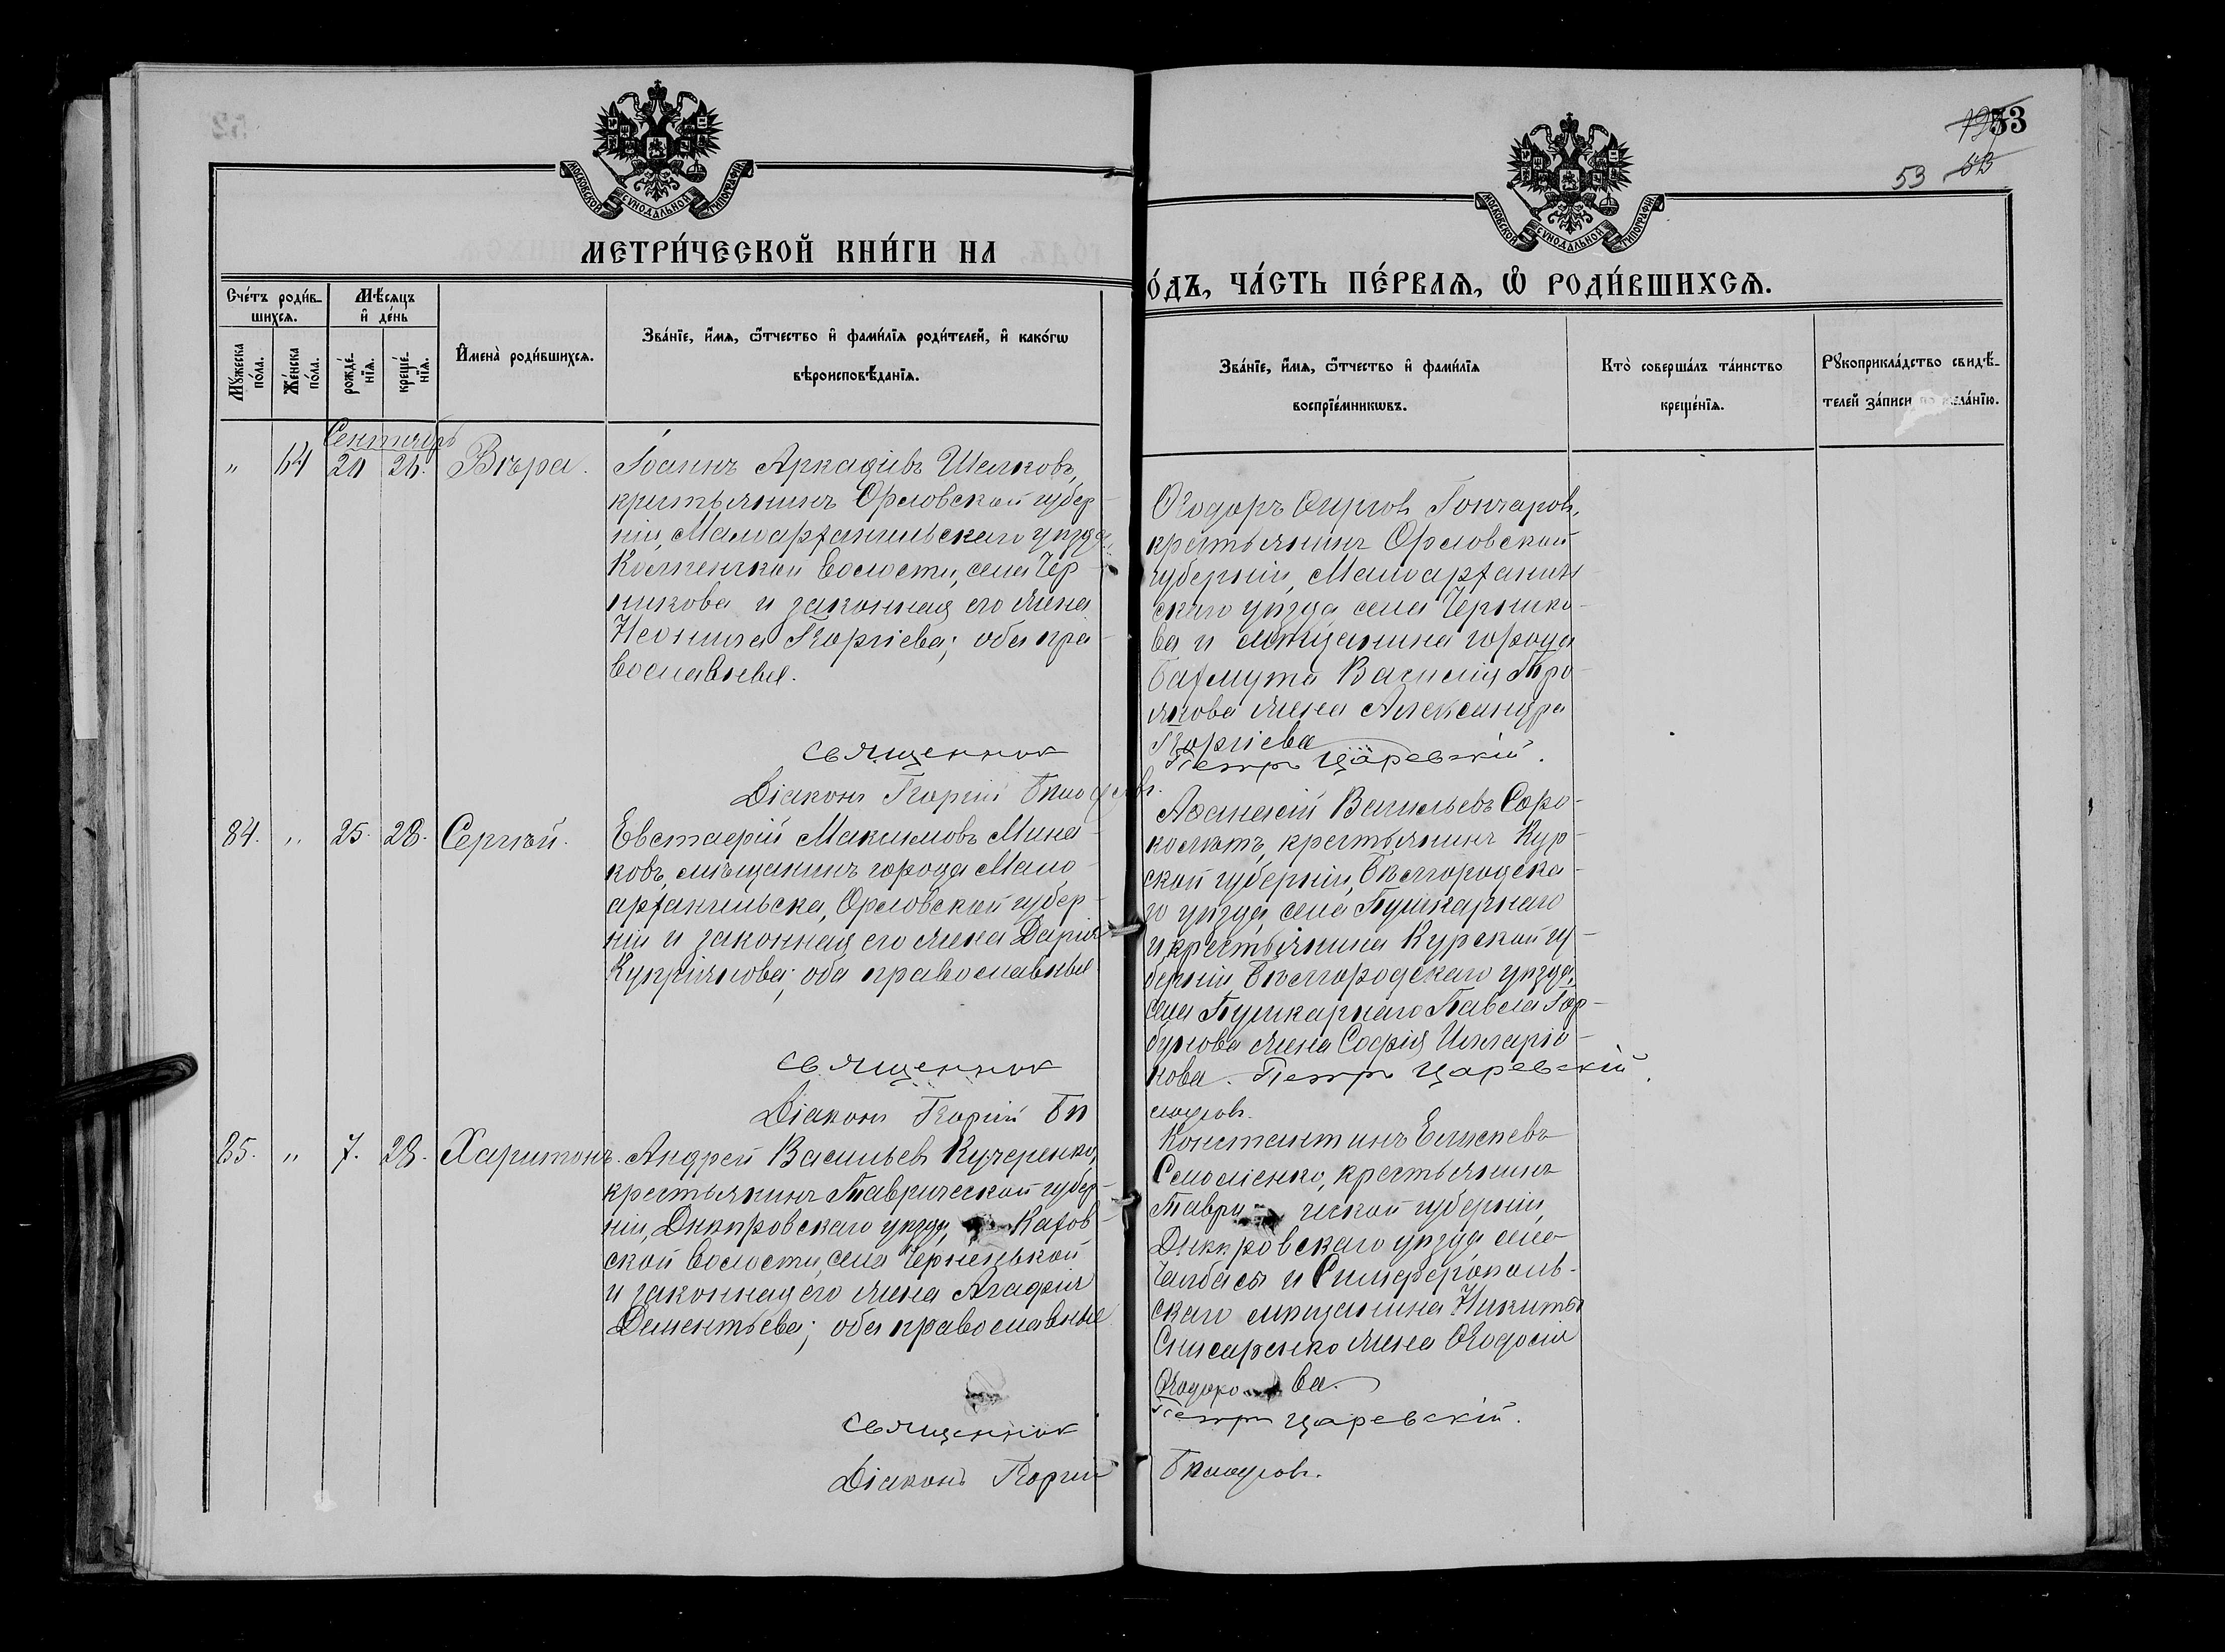 53
53
МОСКОВСКОЙ СѴНОДАЛЬНОЙ ТИПОГРАФІИ
МОСКОВСКОЙ СѴНОДАЛЬНОЙ ТИПОГРАФІИ
МЕТРИ́ЧЕСКОЙ КНИ́ГИ НА
О́ДЪ, ЧА́СТЬ ПЕ́РВАѦ, Ѽ РОДИ́ВШИХСѦ.
Сче́тъ роди́в-
шихсѧ.
Мꙋ́жеска по́ла.
Же́нска по́ла.
Мѣ́сѧцъ
и҆ де́нь
рожде́-нїѧ.
креще́-нїѧ.
И҆мена̀ роди́вшихсѧ.
Зва́нїе, и҆́мѧ, ѻ҆́тчество и҆ фами́лїѧ роди́телей, и҆ како́гѡ
вѣроисповѣ́данїѧ.
Зва́нїе, и҆́мѧ, ѻ҆́тчество и҆ фами́лїѧ
воспрїе́мникѡвъ.
Кто̀ соверша́лъ та́инство
креще́нїѧ.
Рꙋкоприкла́дство свидѣ́-
телей за́писи по жела́нїю.
Сентябрь
" 64 20 26. Вѣра.
Іоаннъ Аркадіевъ Шелковъ,
крестьянинъ Орловской губер-
ніи, Малоархангельскаго уѣзда,
волости, села Чер-
никова и законная его жена
Неонила Георгіева; оба пра-
вославные.
Ѳеодоръ Гончаровъ,
крестьянинъ Орловской
губерніи, Малоархангель-
скаго уѣзда села Чернико-
ва и мѣщанина города
Бахмута Василія
жена Александра
Георгіева
Священник Петръ Царевскій.
Діаконъ Георгій
84. " 25. 28. Сергѣй.
Евстафій Максимовъ Мина-
ковъ, мѣщанинъ города Мало-
архангельска, Орловской губер-
ніи и законная его жена Дарія
Купріянова; оба православные
Аѳанасій Васильевъ Соро-
колѣтъ, крестьянинъ Кур-
ской губерніи, Бѣлгородска-
го уѣзда, села Пушкарнаго
и крестьянина Курской гу-
берніи Бѣлгородскаго уѣзда,
села Пушкарнаго Павла Гор-
бунова жена Софія Илларіо-
нова. Петръ Царевскій.
Священник
Діаконъ Георгій
85. " 7. 28. Харитонъ.
Андрей Васильевъ Кучеренко,
крестьянинъ Таврической губер-
ніи, Днѣпровскаго уѣзда, Кахов-
ской волости, села Черненькой
и законная его жена Агафія
Дементьева; оба православные
Константинъ Елисеевъ
крестьянинъ
Таврической губерніи,
Днѣпровскаго уѣзда село
Чалбасы и Симферополь-
скаго мѣщанина Никиты
Слисаренко жена Ѳеодосія
Ѳеодорова.
Священник Петръ Царевскій.
Діаконъ Георгій